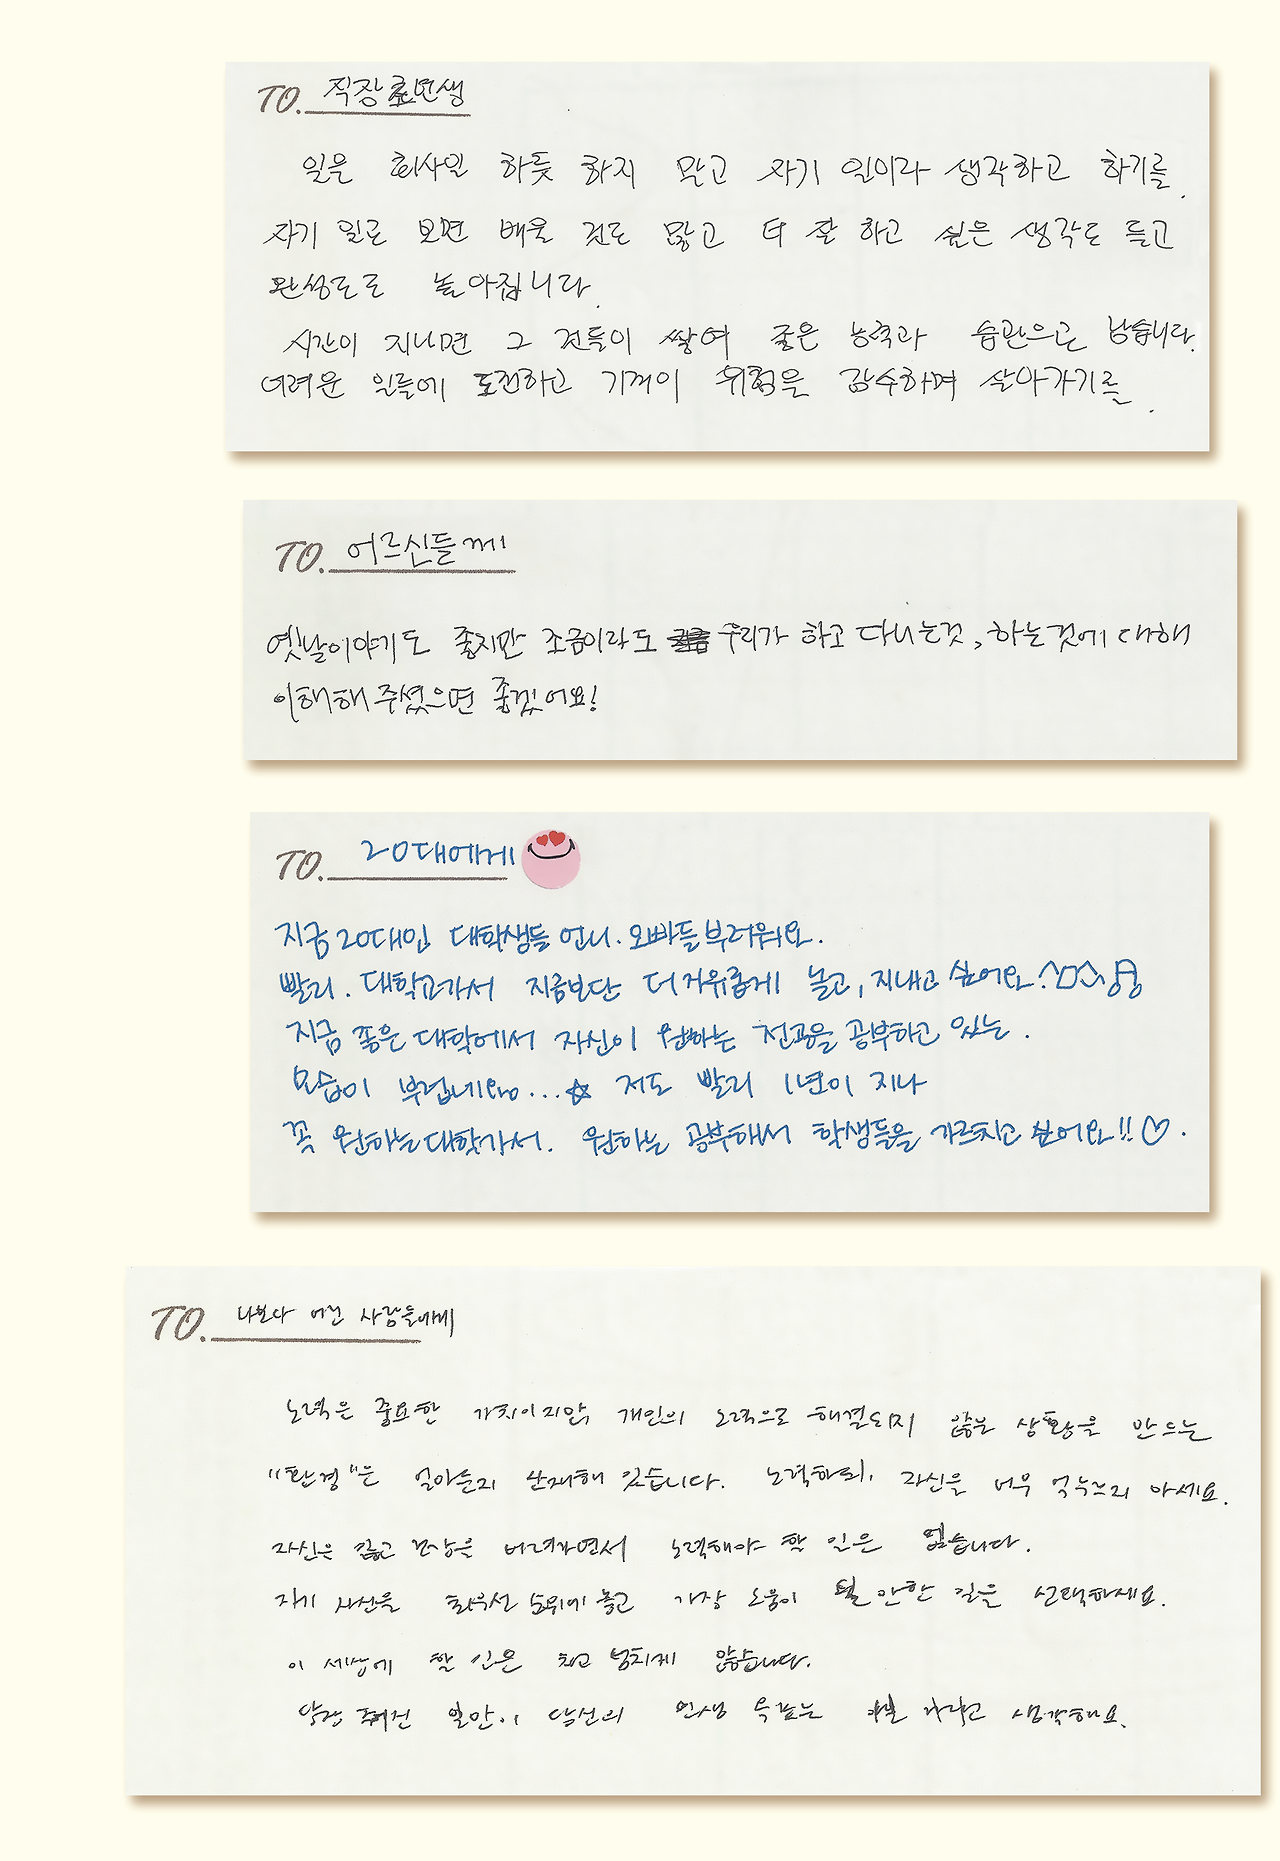 TO. 직장초년생
일은 회사일 하듯 하지 말고 자기 일이라 생각하고 하기를.
자기 일로 보면 배울 것도 많고 더 잘 하고 싶은 생각도 들고
완성도도 높아집니다.
시간이 지나면 그 것들이 쌓여 좋은 능력과 습관으로 남습니다.
어려운 일들에 도전하고 기꺼이 위험을 감수하며 살아가기를.
TO. 어르신들께
옛날이야기도 좋지만 조금이라도 우리가 하고 다니는것, 하는것에 대해
이해해 주셨으면 좋겠어요!
TO. 20대에게
지금 20대인 대학생들 언니. 오빠들 부러워요.
빨리. 대학교가서 지금보단 더 자유롭게 놀고, 지내고 싶어요.
지금 좋은 대학에서 자신이 원하는 전공을 공부하고 있는.
모습이 부럽네요... 저도 빨리 1년이 지나
꼭 원하는 대학가서. 원하는 공부해서 학생들을 가르치고 싶어요!!♡.
TO. 나보다 어린 사람들에게
노력은 중요한 가치이지만, 개인의 노력으로 해결되지 않는 상황을 만드는
"환경"은 얼마든지 산재해 있습니다. 노력하되, 자신을 너무 억누르지 마세요.
자신은 잃고 건강을 버려가면서 노력해야 할 일은 없습니다.
자기 자신을 최우선 순위에 놓고 가장 도움이 될 만한 길을 선택하세요.
이 세상에 할 일은 차고 넘치지 않습니다.
당장 주어진 일만이 당신의 인생 목표는 아닐 거라고 생각해요.